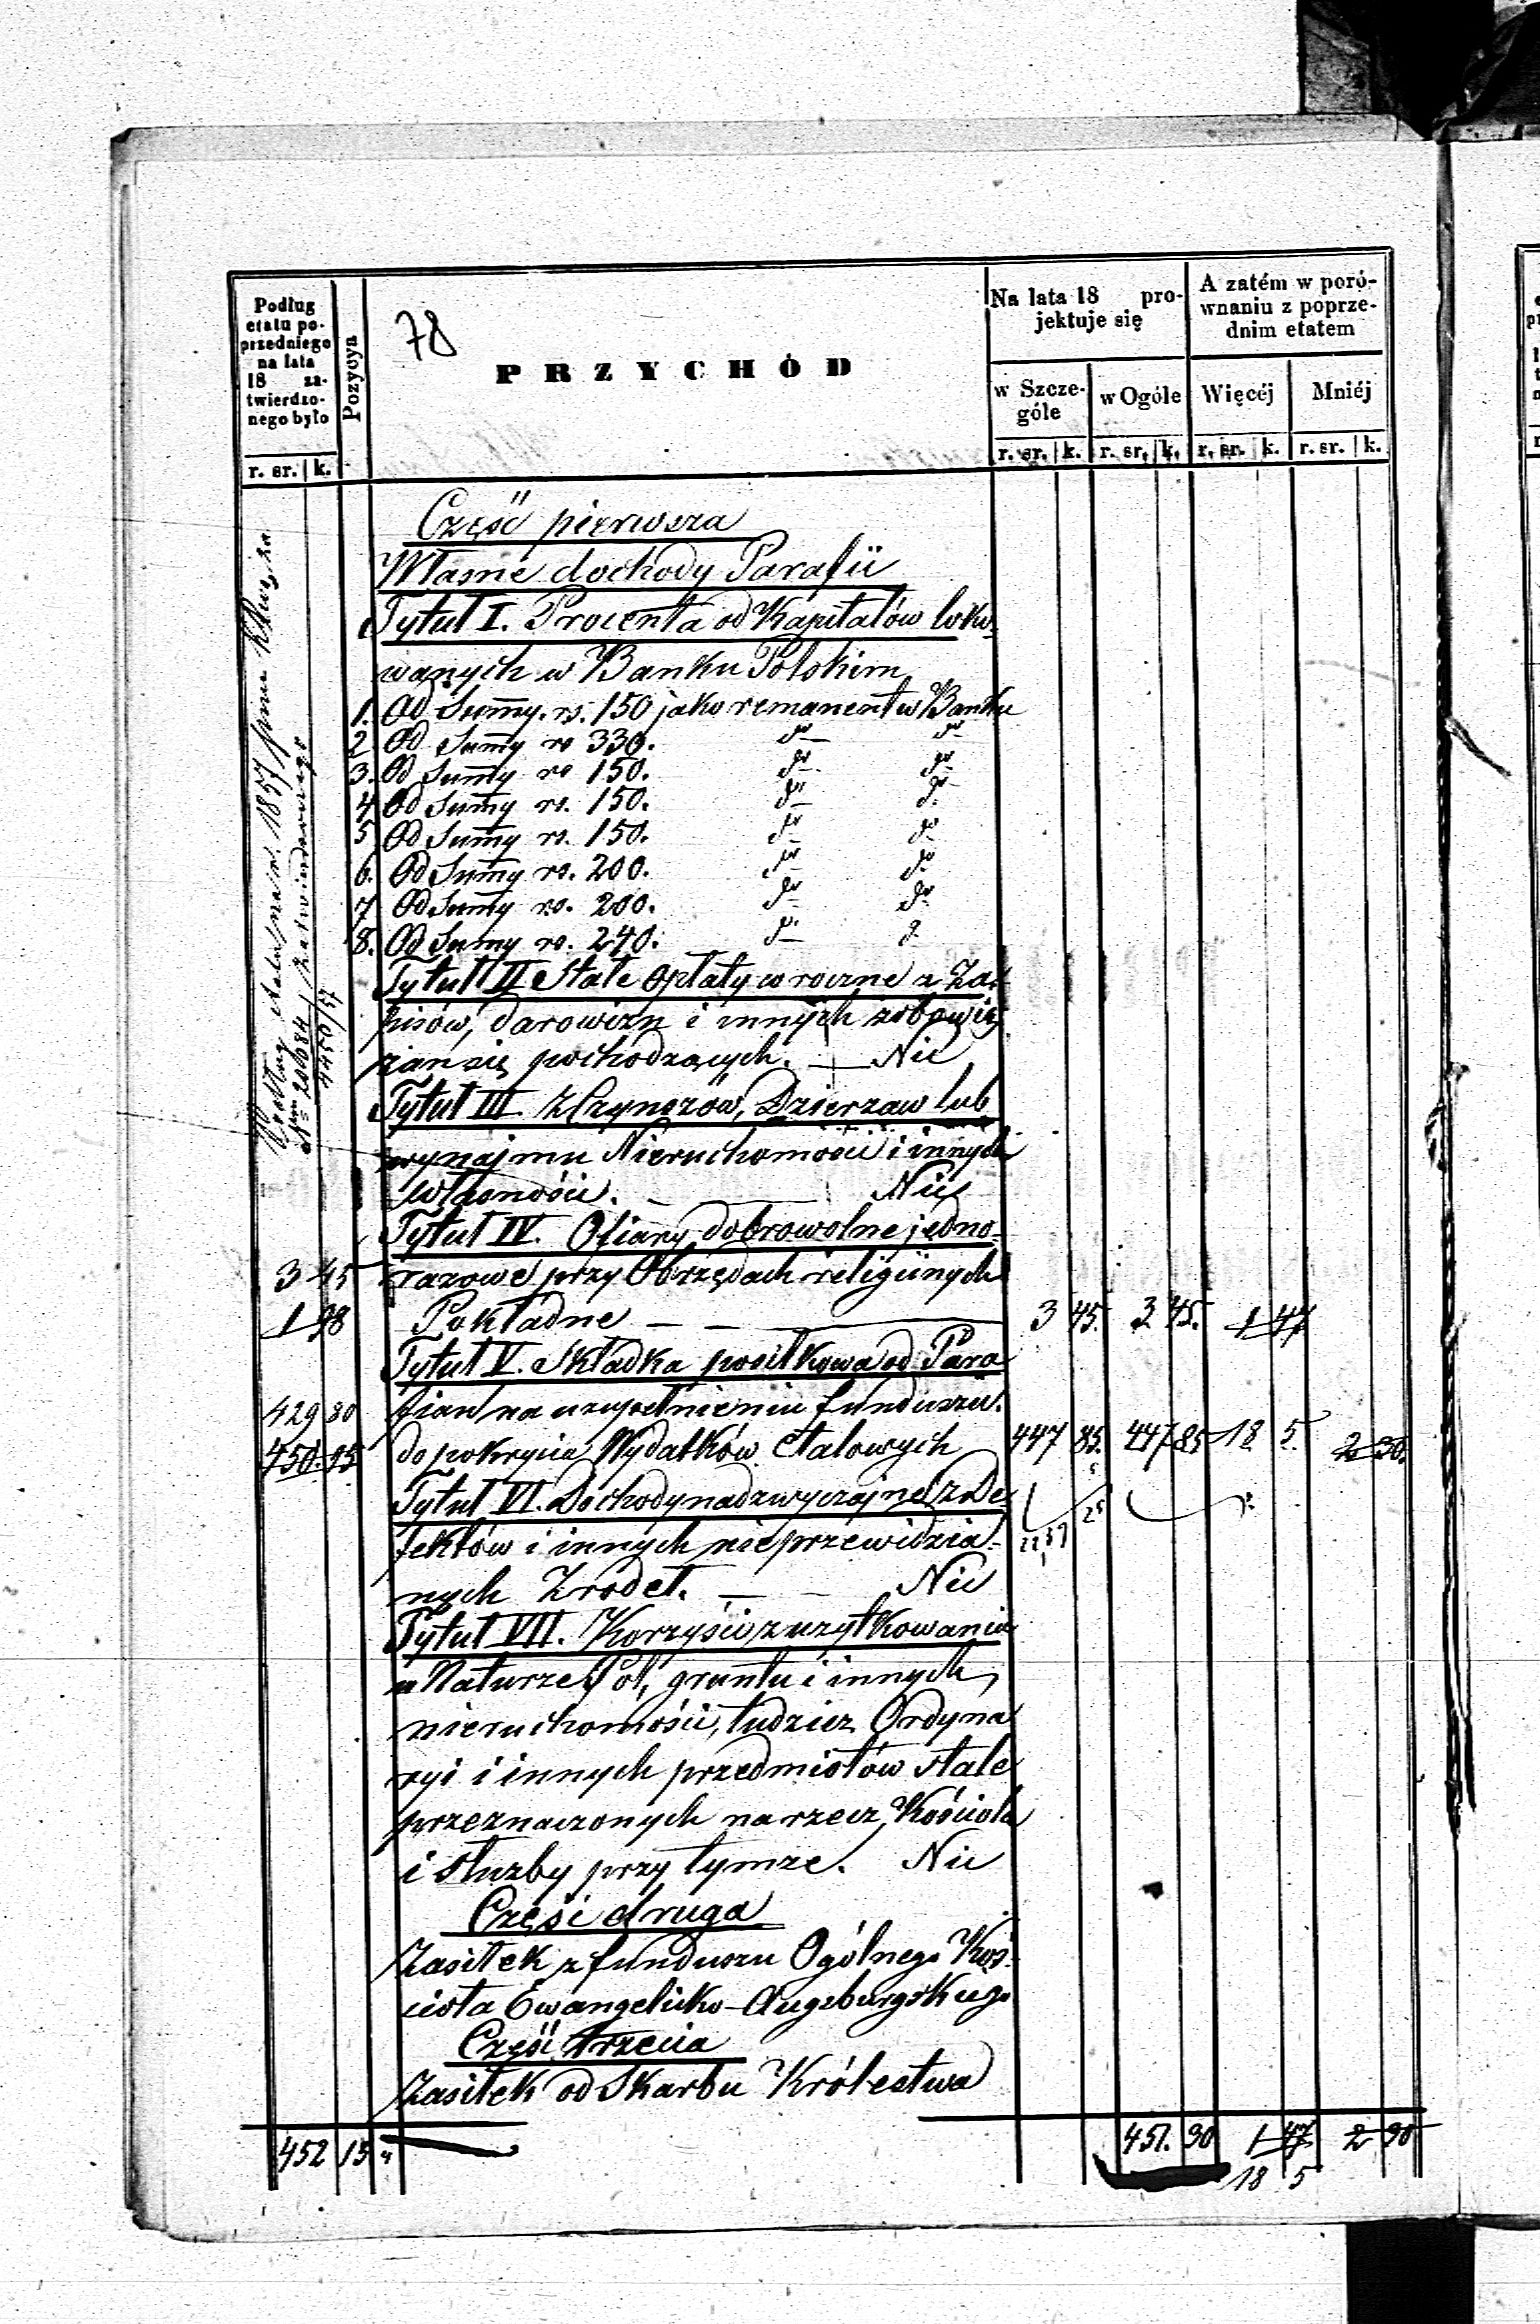 Podług etatu poprzedniego na lata 18 zatwierdzonego było
Pozycya
78
PRZYCHÓD
Na lata 18 projektuje się
A zatém w porównaniu z poprzednim etatem
w Szczególe
w Ogóle
Więcéj
Mniéj
r. sr. k. r. sr. k. r. sr. k. r. sr. k. r. sr. k.
Część pierwsza
Własne dochody Parafii
Tytuł I. Procenta od Kapitałów loko-
wanych w Banku Polskim
1. Od Summy rs. 150 jako remanent w Banku
2 Od Summy rs 330. do do
3. Od Summy rs 150. do do
4 Od Summy rs. 150. do do
5 Od Summy rs. 150. do do
6. Od Summy rs. 200. do do
7 Od Summy rs. 200. do do
8. Od Summy rs. 240. do do
Tytuł II Stałe opłaty w roczne z Za-
pisów, darowizn i innych zobowią
zań się pochodzących. — Nic
Tytuł III. Z Czynszów, Dzierzaw lub
wynajmu Nieruchomości i innych
własności. — Nic
Tytuł IV. Ofiary dobrowolne jedno-
3 45 razowe przy Obrzędach religijnych
1 98 Pokładne — — 3 45. 3 45. 1 47
Tytuł V. Składka posiłkowa od Para
429 80 fian na uzupełnieniu funduszu
450 15 do pokrycia Wydatków Etatowych 447 85. 447 85 18 5. 2 30.
Tytuł VI. Dochody nadzwyczajne z De
fektów i innych nieprzewidzia-
nych Zrodeł. — — Nic
Tytuł VII. Korzyści z uzytkowania
w Naturze Pol, gruntu i innych
nieruchomości, tudzież Ordyna
ryi i innych przedmiotów stale
przeznaczonych na rzecz Kościoła
i służby przy tymze. Nic
Części druga
Zasiłek z funduszu Ogólnego Koś-
cioła Ewangelicko-Augsburgskiego
Część trzecia
Zasiłek od Skarbu Królestwa
452 15 451. 30 1 47 2 30
18 5